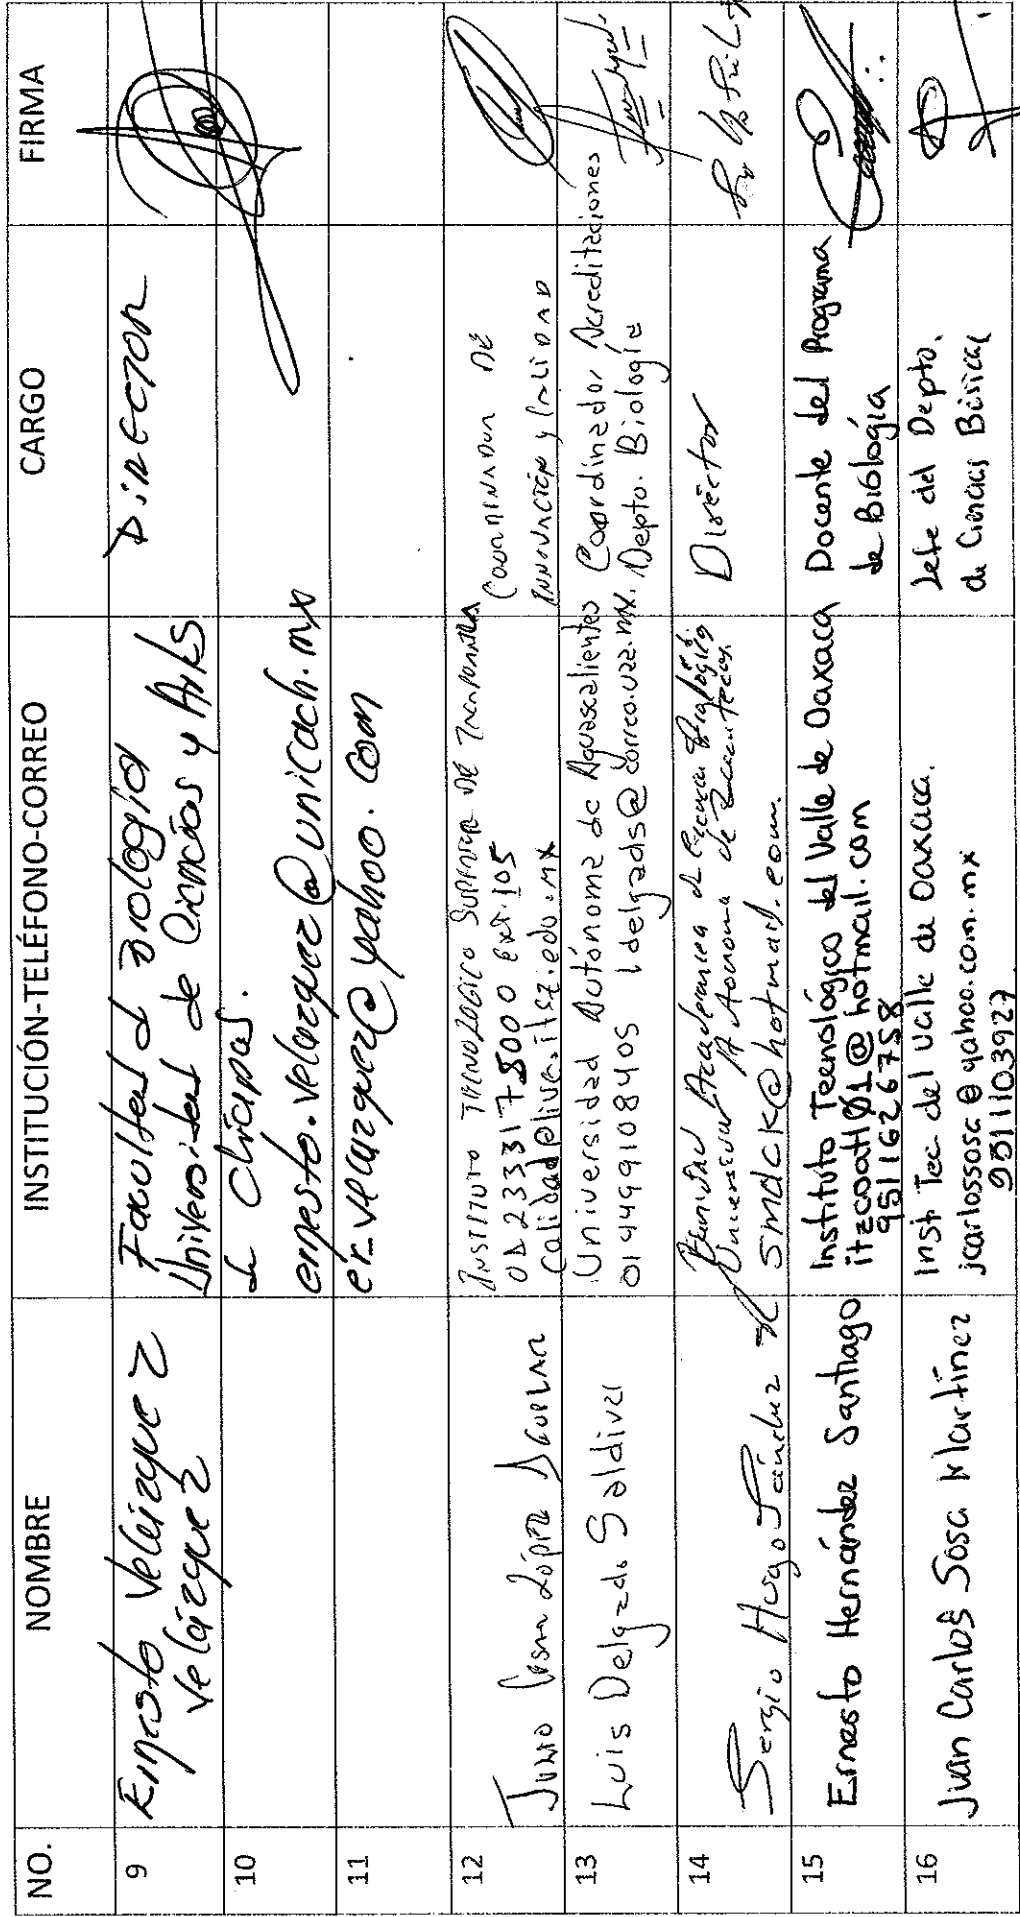 NO. NOMBRE INSTITUCIÓN-TELÉFONO-CORREO CARGO FIRMA
9
Ernesto Velázquez
Velázquez
Facultad d Biología
Universidad de Ciencias y Artes
de Chiapas.
ernesto.velazquez@unicach.mx
er_velazquez@yahoo.com
DIRECTOR
10
11
12
Julio Cesar López Aguilar
INSTITUTO TECNOLÓGICO SUPERIOR DE
01 23331 7 5000 ext. 105
Calidad@live.itsz.edu.mx
COORDINADOR DE
INNOVACIÓN y CALIDAD
13
Luis Delgado Saldivar
Universidad Autónoma de Aguascalientes
014499108405 ldelgads@correo.uaa.mx.
Coordinador Acreditaciones
Depto. Biología
14
Sergio Hugo Sánchez
Unidad Academica d Ciencias Biológicas
Universidad Autonoma de Zacatecas.
smdck@hotmail.com.
Director
15
Ernesto Hernández Santiago
Instituto Tecnológico del Valle de Oaxaca
itzcoatl01@hotmail.com
9511626758
Docente del Programa
de Biología
16
Juan Carlos Sosa Martínez
Inst Tec del Valle de Oaxaca.
jcarlossosa@yahoo.com.mx
9511103927
Jefe del Depto.
de Ciencias Básicas